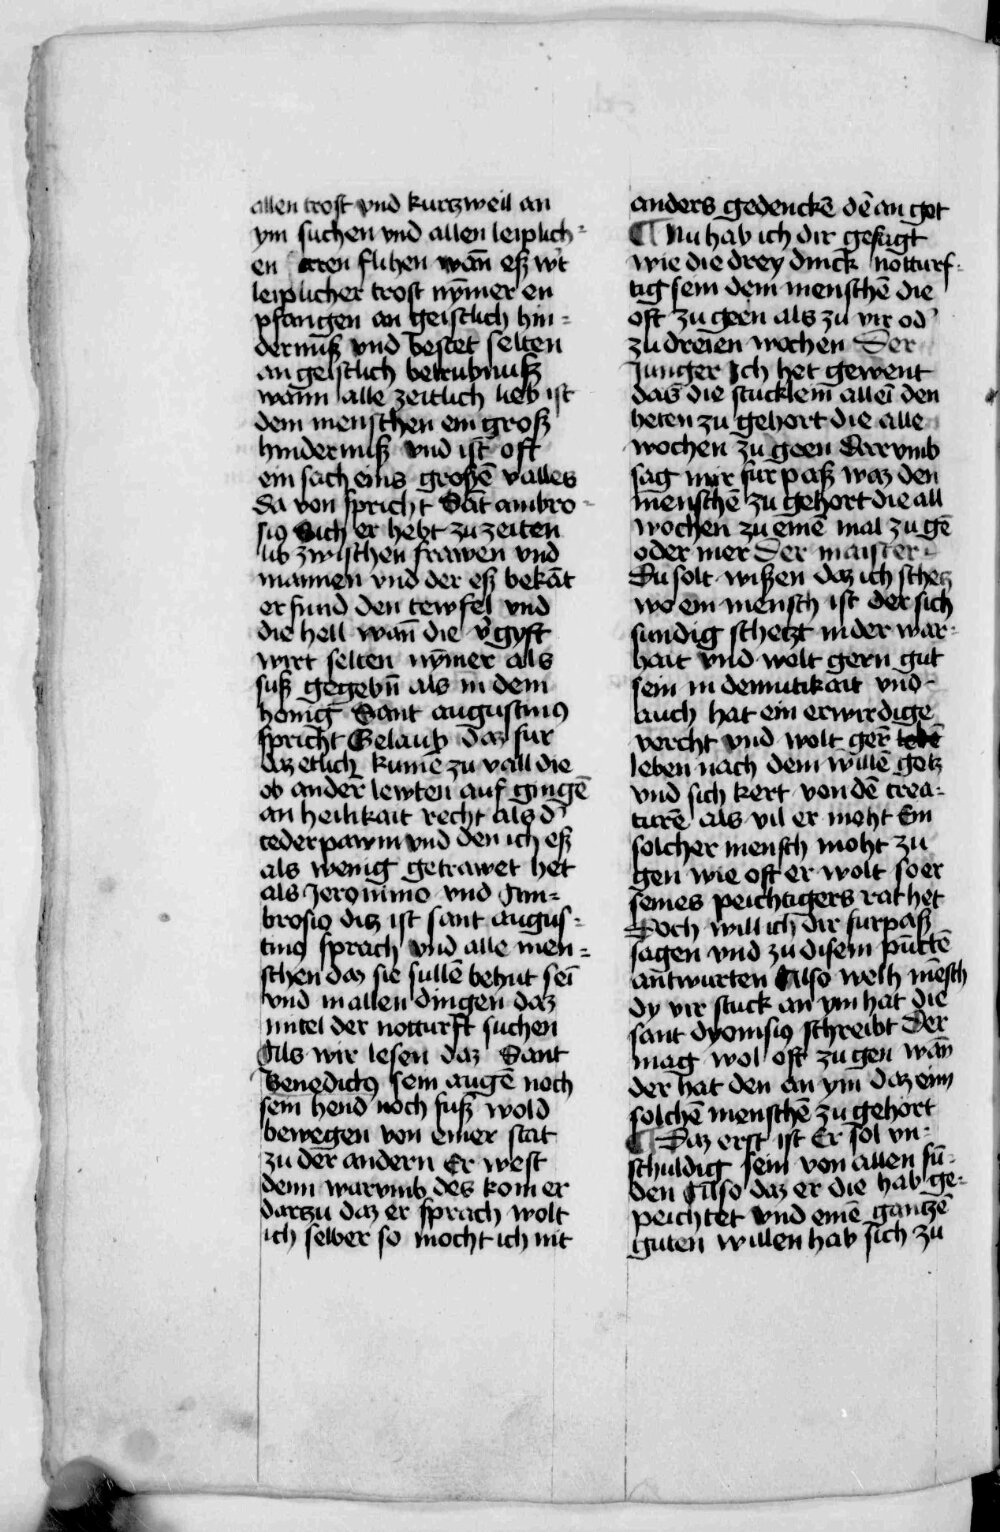 allen trost vnd kurczweil an
ym suchen vnd allen leiplich⸗
en flihen wan̄ eß w't
leiplicher trost nȳmer en
pfangen an geistlich hin⸗
dernuß vnd bestet selten
an geistlich betrubnuß
wann alle zeitlich lieb ist
dem menschen ein groß
hindernuß vnd ist oft
ein sach eins großē valles
da von spricht Sāt ambro⸗
siꝰ Sich er hebt zu zeiten
lib zwischen frawen vnd
mannen vnd der eß bekāt
er fund den tewfel vnd
die hell wan̄ die v'gyft
wirt selten nȳmer als
suß gegebn̄ als in dem
honig Sant augustinꝰ
spricht Gelaub daz fur
daz etlich kumē zu vall die
ob ander lewten auf gingē
an heilikait recht als d'
ceder pawm vnd den ich eß
als wenig getrawet het
als Jeronimo vnd Am⸗
brosio diz ist sant augus⸗
tinꝰ sprach vnd alle men⸗
schen daz sie sullē behut sei
vnd in allen dingen daz
mitel der notturft suchen
Als wir lesen daz Sant
Benedictꝰ sein augē noch
sein hend noch fuß wold
bewegen von einer stat
zu der andern Er west
denn warvmb des kom er
darczu daz er sprach wolt
ich selber so mocht ich nit
anders gedenckē dē an got
¶ Nu hab ich dir gesagt
wie die drey dinck notturf⸗
tig sein dem menschē die
oft zu geen als zu vir od'
zu dreien wochen Der
Junger Ich het gewent
das die stucklein allei den
heten zu gehort die alle
wochen zu geen Darvmb
sag mir furpaß waz den
menschē zu gehort die all
wochen zu einē mal zu gē
oder mer Der maister
Du solt wißen daz ich schecz
wo ein mensch ist der sich
sundig scheczt in der war⸗
hait vnd wolt gern gut
sein in demutikait vnd
auch hat ein erwirdige
vorcht vnd wolt ger̄ lebē
leben nach dem willē gotz
vnd sich kert von dē crea⸗
turē als vil er moht Ein
solcher mensch moht zu
gen wie oft er wolt so er
seines peichtigers rat het
Doch will ich dir furpaß
sagen vnd zu disem punctē
antwurten Also welh mēsch
dy vir stuck an ym hat die
sant dyonisiꝰ schreibt Der
mag wol oft zu gen wan̄
der hat den an ym daz eim
solchē menschē zu gehort
¶ Daz erst ist Er sol vn⸗
schuldig sein von allen sū⸗
den Also daz er die hab ge⸗
peichtet vnd einē gantzē
guten willen hab sich zu